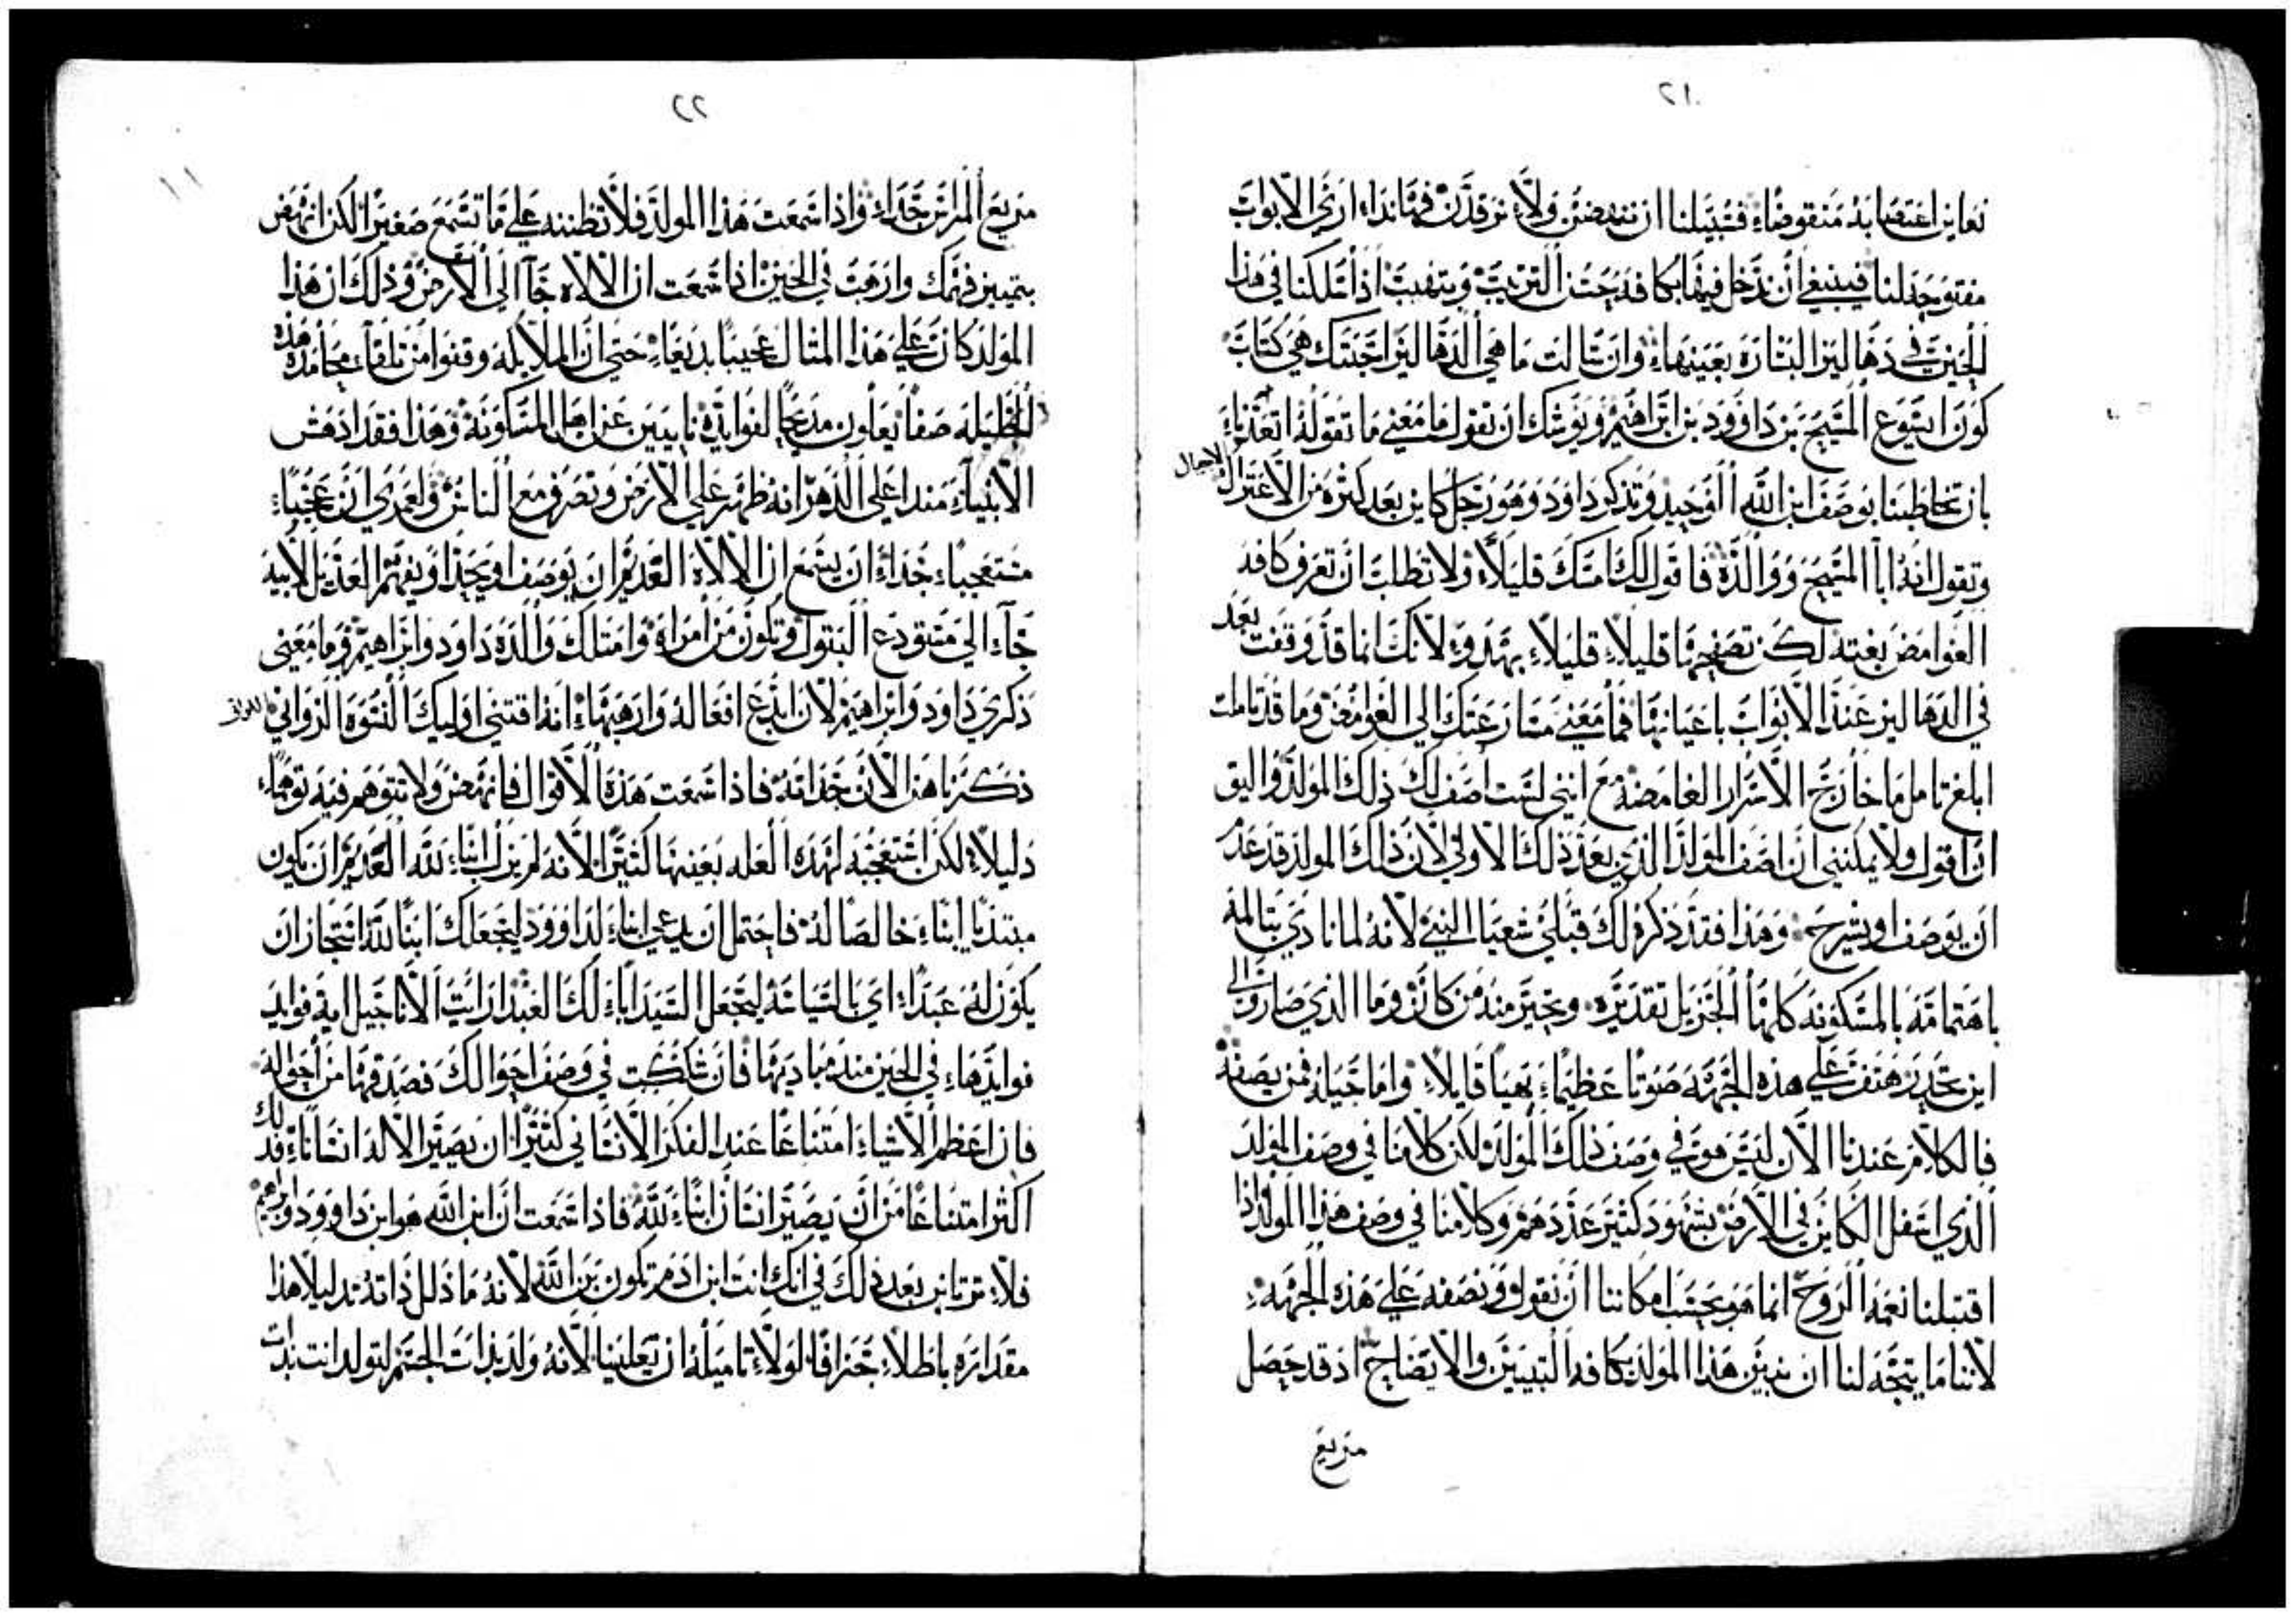 ٢١
نعاين اغتصابه منقوضاء فسبيلنا ان ننهضن ولا نرقدن فهاندا ارى الابواب
مفتوحة لنا فينبغي ان ندخل فيها بكافة حسن الترتيب ونتهيب اذا سلكنا في هذا
الحين في دهاليز البشارة بعينها وان سالت ما هي الدهاليز اجبتك هي كتاب
كون ايسوع المسيح بن داوود بن ابراهيم ويوشك ان تقول ما معني ما تقوله اتعدنا
بان تخاطبنا بوصف ابن الله الوحيد وتذكر داود وهو رجل كاين بعد كثره من الاجيال
وتقول انه ابا المسيح ووالده فاقول لك امسك قليلا ولا تطلب ان تعرف كافة
الغوامض بغتة لكن تصفحها قليلاء قليلاء بهدوء لانك انما قد وقفت بعد
في الدهاليز عند الابواب باعيانها فما معني مسارعتك الى الغوامض وما قد تاملت
ابلغ تامل ما خارج الاسرار الغامضة مع انني لست اصف لك ذلك المولد واليق
ان اقول ولا يمكنني ان اصف المولد الذي بعد ذلك الاولي لان ذلك المولد قد عدم
ان يوصف او يشرح وهذا فقد ذكره لك قبلي شعيا النبي لانه لما نادي بتالمه
باهتمامه بالمسكونه كلها الجزيل تقديره وتحير منه من كان وما الذي صار والى
اين تحدر هتف علي هذه الجهة صوتا عظيماء بهيا قايلاء واما جيله فمن يصفه
فالكلام عندنا الان ليس هو في وصف ذلك المولد لكن كلامنا في وصف المولد
الذي اسفل الكاين في الارض بشهود كثير عددهم وكلامنا في وصف هذا المولد اذا
اقتبلنا نعمة الروح انما هو بحسب امكاننا ان نقول ونصفه علي هذه الجهة
لاننا ما يتجه لنا ان نبين هذا المولد بكافة التبيين والايضاح اذ قد حصل
مريع
٢٢
١١
مريع المرا جداء واذا سمعت هذا المولد فلا تظننه علي ما تسمع صغيرا لكن انهض
بتمييز فهمك وارهب في الحين اذا سمعت ان الالاه جاا الى الارض وذلك ان هذا
المولد كان علي هذا المثال عجيبا بديعاء حتى ان الملايكه وقفوا من تلقاء محامده هذه
صفا يعلون مديحا لفوايده نايبين عن اهل المسكونة وهذا فقد ادهش
الانبياء منذ اعلي الدهر انه ظهر علي الارض وتصرف مع الناس ولعمري ان عجباء
مستعجباء جداء ان يسمع ان الالاه القديم ان يوصف او يحد او يفهم العديل لابيه
جاء الي مستودع البتول وتكون من امراة وامتلك والده داود وابراهيم وما معني
ذكري داود وابراهيم لان ابدع افعاله وارهبها انه اقتني اوليك النسوه الزواني اللواتي
ذكرناهن الان جداته فاذا سمعت هذه الاقوال فانهض ولا تتوهم فيه توهماء
دليلاء لكن استعجبه لهذه العله بعينها كثيرا لانه لم يزل ابناء لله القديم ان يكون
مبتديا ابناء خالصا له فاحتمل ان يدعي ابناء لداوود ليجعلك ابنا لله استجاز ان
يكون له عبداء اي بالسياسة ليجعل السيد اباء لك العبد ارايت الاناجيل اية فوايد
فوايدها في الحين منذ مباديها فان شككت في وصف احوالك فصدقها من احواله
فان اعظم الاشياء امتناعا عند الفكر الانساني كثيرا ان يصير الاله انساناء فذلك
اكثر امتناعا من ان يصير انسان ابناء لله فاذا سمعت ان ابن الله هو ابن داوود وابراهيم
فلاء ترتابن بعد ذلك في انك انت ابن ادم تكون بن الله لانه ما ذلل ذاته تدليلا هذا
مقداره باطلا جزافا لولاء تاميله ان يعلينا لانه ولد بذات الجسم لتولد انت بذات